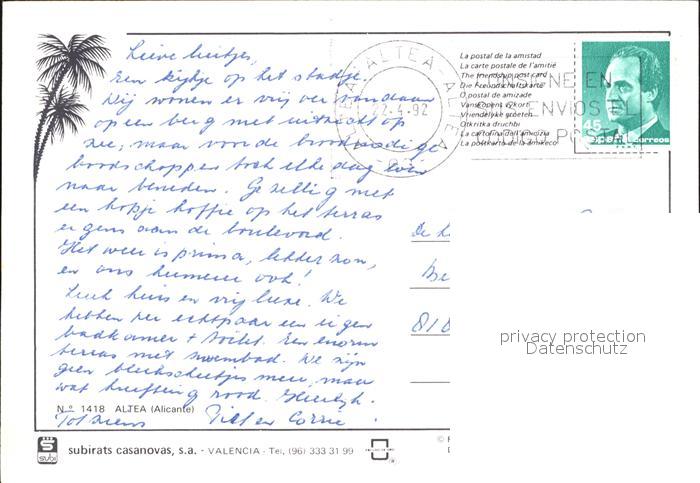 Lieve luitjes,
Een kijkje op het stadje.
Wij wonen er vrij ver vandaan
op een berg met uitzicht op
zee, maar voor de broodnodige
boodschappen toch elke dag even
naar beneden. Gezellig met
een kopje koffie op het terras
ergens aan de boulevard.
Het weer is prima, lekker zon,
en ons humeur ook!
Leuk huis en vrij luxe. We
hebben per echtpaar een eigen
badkamer + toilet. Een enorm
terras met zwembad. We zijn
geen bleekscheetjes meer, maar
wat kreeftig rood. Heerlijk.
Nº 1418 ALTEA (Alicante)
Tot ziens Piet en Corrie.
subi
subirats casanovas, s.a. - VALENCIA - Tel, (96) 333 31 99
La postal de la amistad
La carte postale de l'amitié
The friendship post card
Die Freundschaftskarte
O postal de amizade
Vanskapens vykort
Vriendelijke groeten
Otkritka druchbi
La cartolina dell'amicizia
La postkarto de la amikeco
ALTEA
92
EN
ENVIOS
POSTAL
45
España correos
De
Be
810
privacy protection
Datenschutz
©